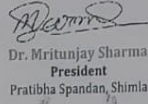 Dr. Mritunjay Sharma
President
Pratibha Spandan, Shimla